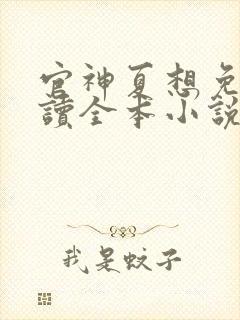 官神夏想免
讀全本小說
我是蚊子